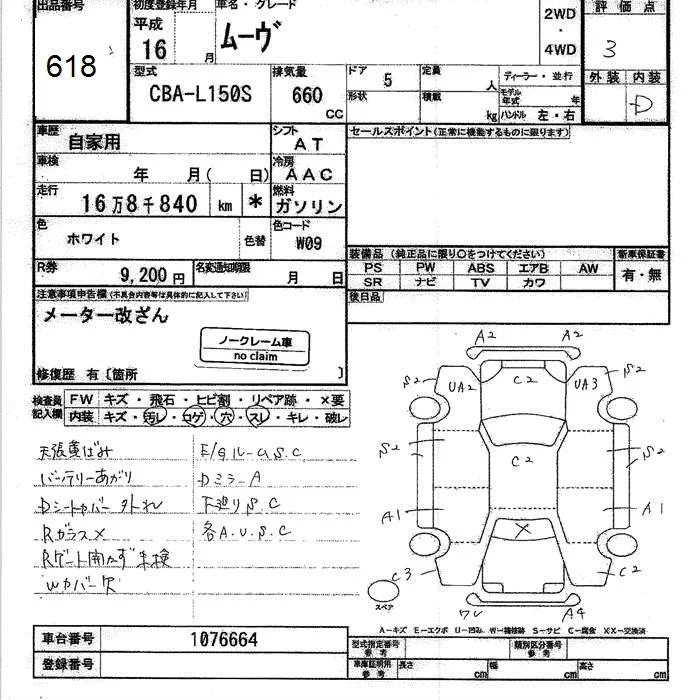 出品番号
618
初度登録年月
平成
16 月
車名・グレード
ムーヴ
2WD
・
4WD
評価点
3
外装 内装
D
型式
CBA-L150S
排気量
660
CC
ドア
5
定員
人
形状
積載
kg
ディーラー・並行
モデル年式 年
ハンドル 左・右
車歴
自家用
シフト
AT
セールスポイント(正常に機能するものに限ります)
車検
年 月( 日)
冷房
AAC
走行
16万8千840 km *
燃料
ガソリン
色
ホワイト
色替
色コード
W09
R券
9,200円
名変通知期限
月 日
装備品(純正品に限り○をつけてください)
PS PW ABS エアB AW
SR ナビ TV カワ
新車保証書
有・無
後日品
注意事項申告欄(不具合内容等は具体的に記入して下さい)
メーター改ざん
ノークレーム車
no claim
修復歴 有〔箇所 〕
検査員記入欄
FW キズ・飛石・ヒビ割・リペア跡・×要
内装 キズ・汚レ・コゲ・穴・スレ・キレ・破レ
天張黄ばみ
バッテリーあがり
Dシートカバー外れ
Rガラス×
Rゲート開かず未検
Wカバー欠
F/グリル-U.S.C
Dミラー A
下廻りS.C
各A.U.S.C
A2 A2
S2 UA2 C2 UA3 S2
S2 C2 S2
A1 A1
×
C3 C2
スペア
A4
A―キズ E―エクボ U―凹み W―補修跡 S―サビ C―腐食 XX―交換済
車台番号
1076664
登録番号
型式指定番号
参考
類別区分番号
参考
車庫証明用
参考
長さ cm
幅 cm
高さ cm